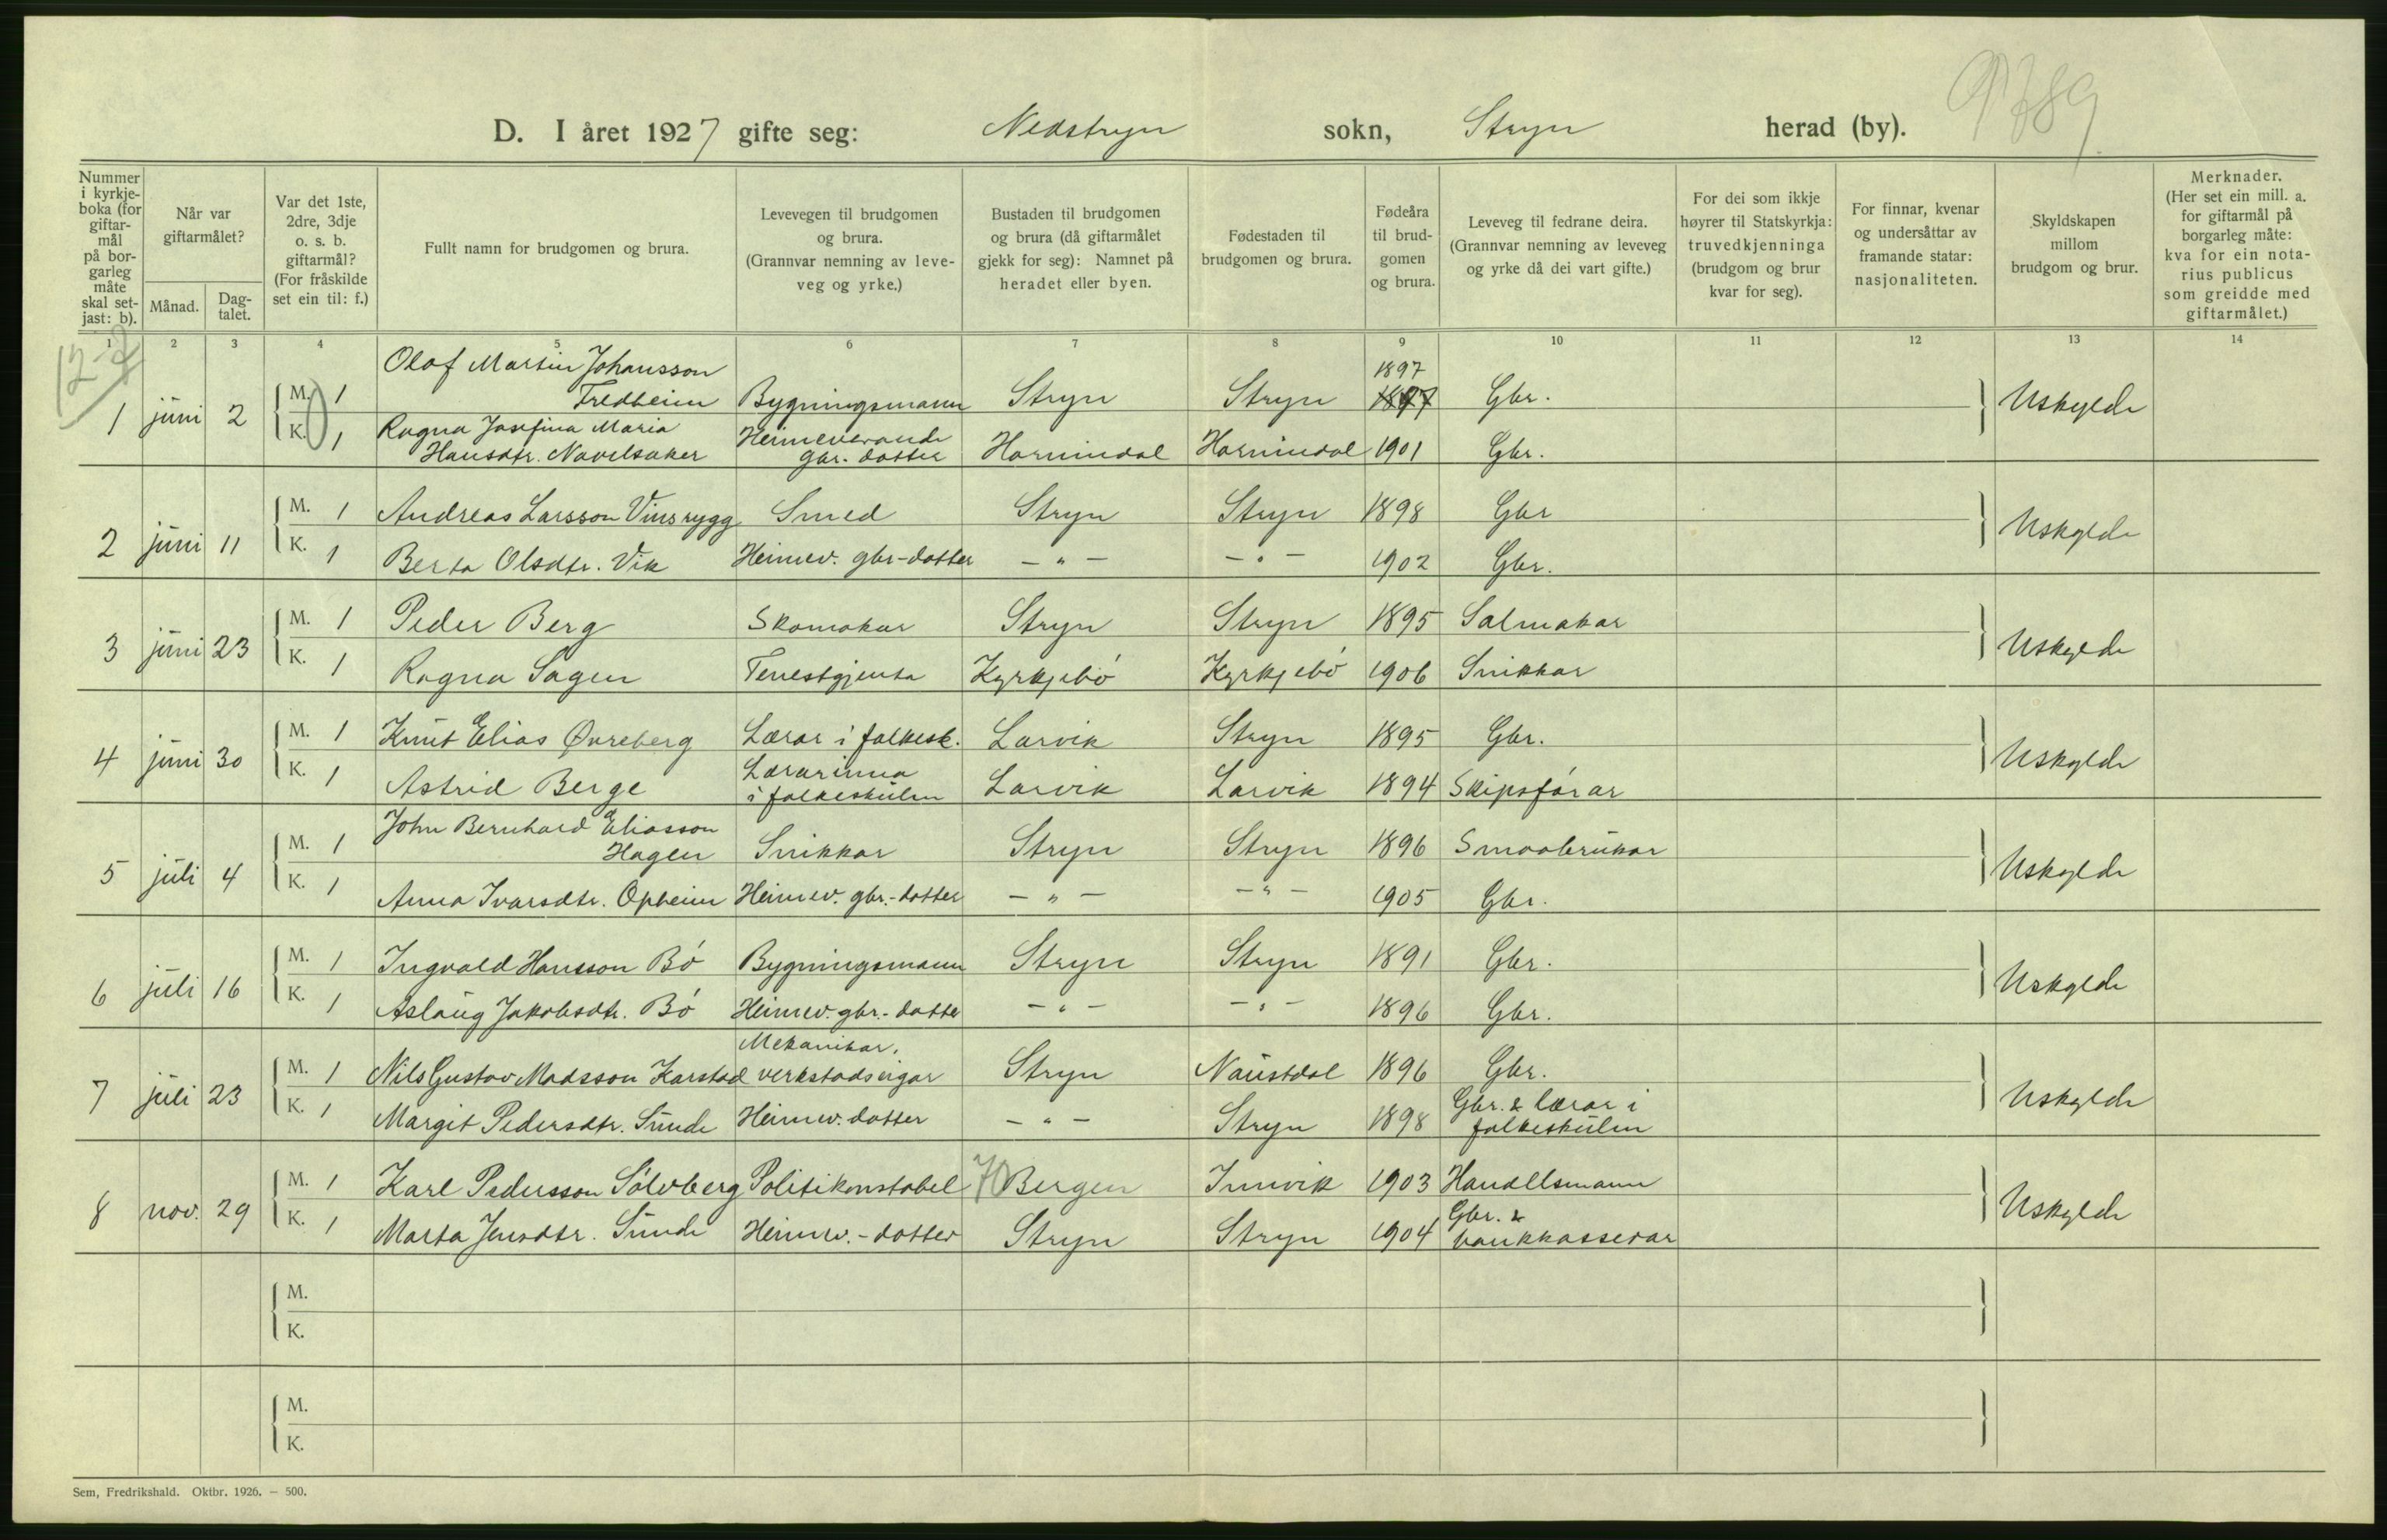 D. I året 1927 gifte seg: Nedstryn sokn, Stryn herad (by).
Nummer i kyrkje-boka (for giftar-mål på bor-garleg måte skal set-jast: b).
Når var giftarmålet?
Månad.
Dag-talet.
Var det 1ste, 2dre, 3dje o. s. b. giftarmål? (For fråskilde set ein til: f.)
Fullt namn for brudgomen og brura.
Levevegen til brudgomen og brura. (Grannvar nemning av leve-veg og yrke.)
Bustaden til brudgomen og brura (då giftarmålet gjekk for seg): Namnet på heradet eller byen.
Fødestaden til brudgomen og brura.
Fødeåra til brud-gomen og brura.
Leveveg til fedrane deira. (Grannvar nemning av leveveg og yrke då dei vart gifte.)
For dei som ikkje høyrer til Statskyrkja: truvedkjenninga (brudgom og brur kvar for seg).
For finnar, kvenar og undersåttar av framande statar: nasjonaliteten.
Skyldskapen millom brudgom og brur.
Merknader. (Her set ein mill. a. for giftarmål på borgarleg måte: kva for ein nota-rius publicus som greidde med giftarmålet.)
1 2 3 4 5 6 7 8 9 10 11 12 13 14
1 juni 2 M. 1 Olaf Martin Johansson Fredheim Bygningsmann Stryn Stryn 1897 Gbr. Uskylde
K. 1 Ragna Josefina Maria Hansdtr. Navelsaker Heimeverande gbr. dotter Hornindal Hornindal 1901 Gbr.
2 juni 11 M. 1 Andreas Larsson Vinsrygg Smed Stryn Stryn 1898 Gbr Uskylde
K. 1 Berta Olsdtr. Vik Heimev. gbr-dotter - " - - " - 1902 Gbr.
3 juni 23 M. 1 Peder Berg Skomakar Stryn Stryn 1895 Salmakar Uskylde
K. 1 Ragna Sagen Tenestgjenta Kyrkjebö Kyrkjebö 1906 Snikkar
4 juni 30 M. 1 Knut Elias Øvreberg Lærar i folkesk. Larvik Stryn 1895 Gbr. Uskylde
K. 1 Astrid Berge Lærarinna i folkeskulen Larvik Larvik 1894 Skipsförar
5 juli 4 M. 1 John Bernhard Eliasson Hagen Snikkar Stryn Stryn 1896 Smaabrukar Uskylde
K. 1 Anna Ivarsdtr. Opheim Heimev. gbr.-dotter - " - - " - 1905 Gbr.
6 juli 16 M. 1 Ingvald Hansson Bö Bygningsmann Stryn Stryn 1891 Gbr. Uskylde
K. 1 Aslaug Jakobsdtr. Bö Heimev. gbr.-dotter - " - - " - 1896 Gbr.
7 juli 23 M. 1 Nils Gustav Madsson Karstad Mekanikar, verkstadseigar Stryn Naustdal 1896 Gbr. Uskylde
K. 1 Margit Pedersdtr. Sunde Heimev. dotter - " - Stryn 1898 Gbr. & lærar i folkeskulen
8 nov. 29 M. 1 Karl Pedersson Sölvberg Politikonstabel Bergen Innvik 1903 Handelsmann Uskylde
K. 1 Marta Jensdtr. Sunde Heimev.-dotter Stryn Stryn 1904 Gbr. & bankkasserar
M.
K.
M.
K.
Sem, Fredrikshald. Oktbr. 1926. — 500.